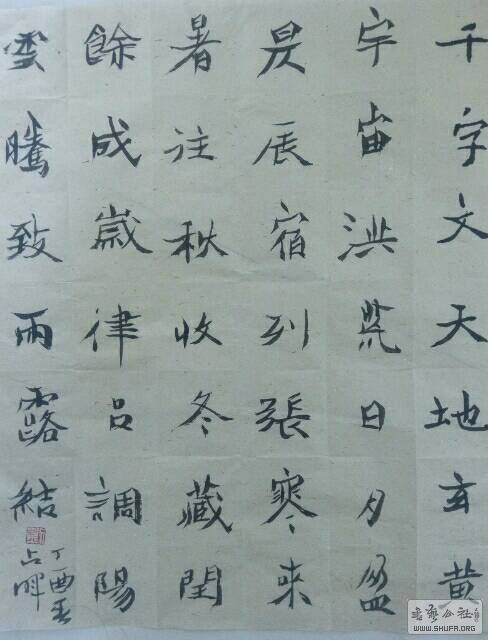 千字文天地玄黄
宇宙洪荒日月盈
昃辰宿列張寒来
暑往秋收冬藏閏
餘成歲律吕調陽
雲騰致雨露結
丁酉
占
WWW.SHUFA.ORG